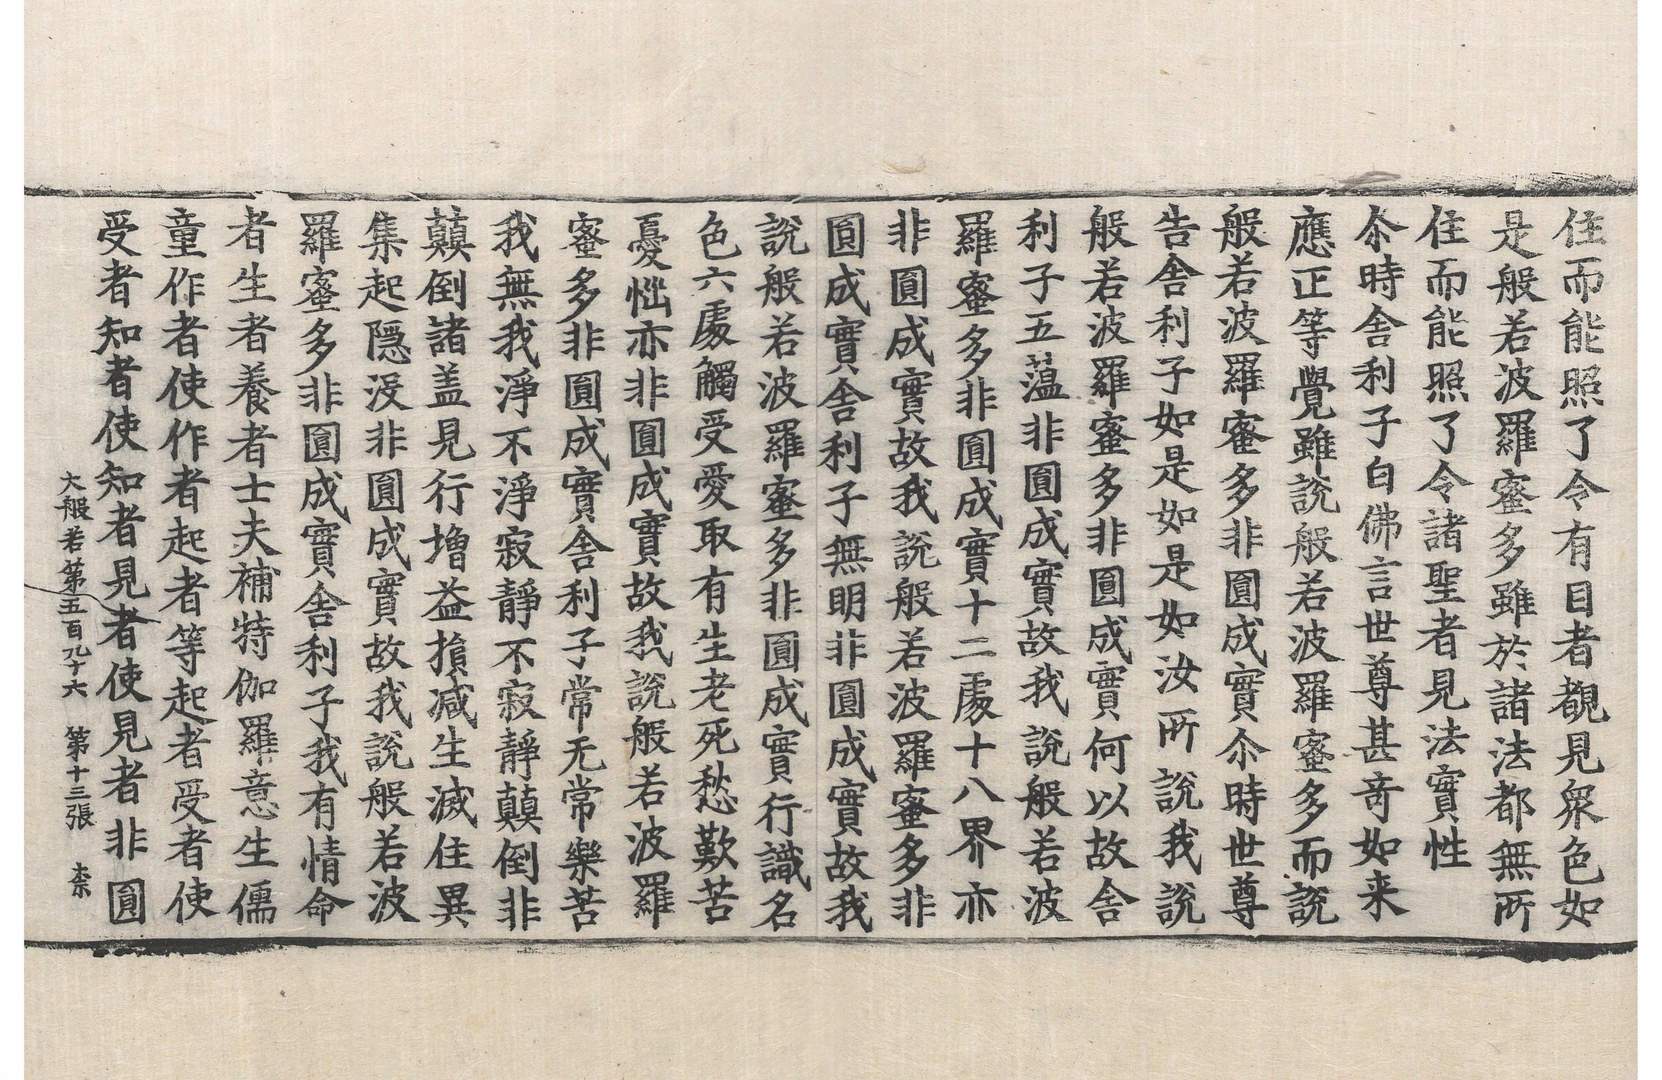 住而能照了令有目者覩見衆色如
是般若波羅蜜多雖於諸法都無所
住而能照了令諸聖者見法實性
尒時舍利子白佛言世尊甚奇如来
應正等覺雖說般若波羅蜜多而說
般若波羅蜜多非圓成實尒時世尊
告舍利子如是如是如汝所說我說
般若波羅蜜多非圓成實何以故舍
利子五蕰非圓成實故我說般若波
羅蜜多非圓成實十二處十八界亦
非圓成實故我說般若波羅蜜多非
圓成實舍利子無明非圓成實故我
說般若波羅蜜多非圓成實行識名
色六處觸受愛取有生老死愁歎苦
憂惱亦非圓成實故我說般若波羅
蜜多非圓成實舍利子常无常樂苦
我無我淨不淨寂靜不寂靜顛倒非
顛倒諸盖見行增益損减生滅住異
集起隱沒非圓成實故我說般若波
羅蜜多非圓成實舍利子我有情命
者生者養者士夫補特伽羅意生儒
童作者使作者起者等起者受者使
受者知者使知者見者使見者非圓
大般若第五百九十六　第十三張　柰